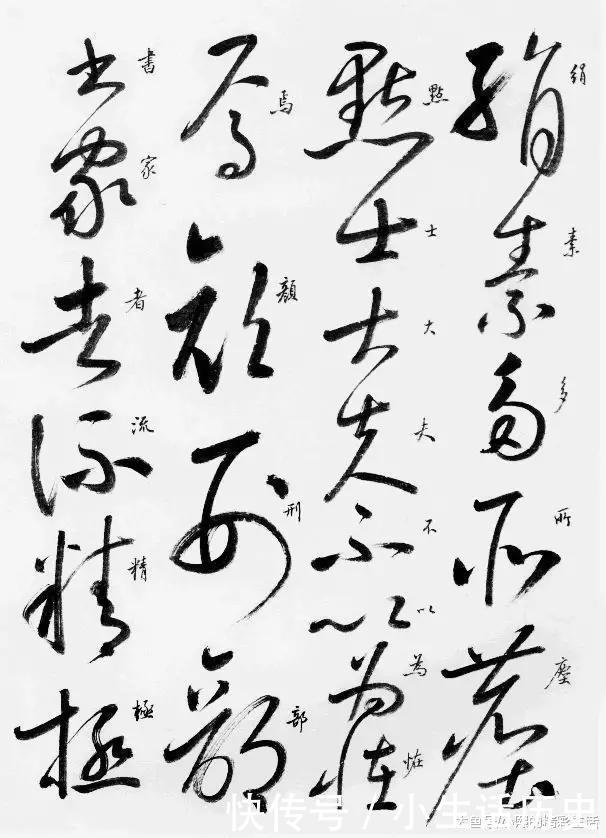 绢素多所塵
點士大夫不以為怪
焉顏刑部
書家者流精極
快传号/小生活历史